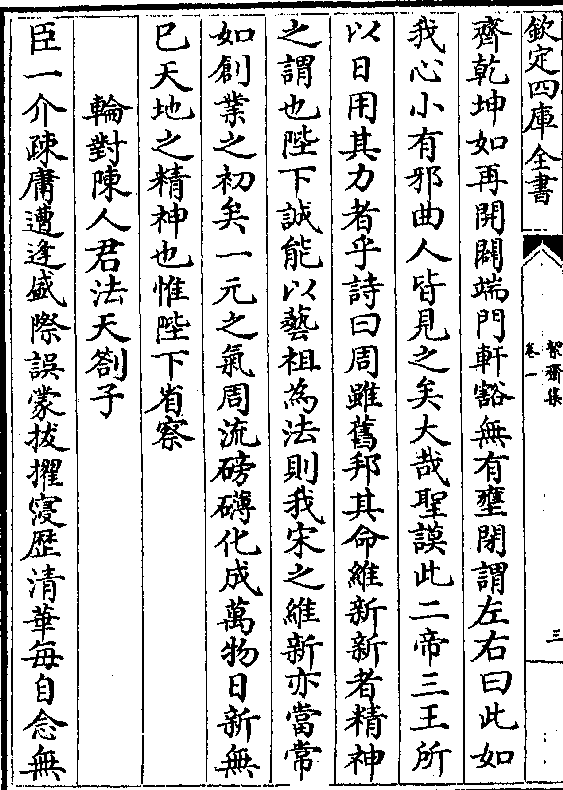 欽定四庫全書
絜齋集
卷一
三
齊乾坤如再開闢端門軒豁無有壅閉謂左右曰此如
我心小有邪曲人皆見之矣大哉聖謨此二帝三王所
以日用其力者乎詩曰周雖舊邦其命維新新者精神
之謂也陛下誠能以藝祖為法則我宋之維新亦當常
如創業之初矣一元之氣周流磅礴化成萬物日新無
已天地之精神也惟陛下省察
輪對陳人君法天劄子
臣一介疎庸遭逢盛際誤蒙拔擢寖歴清華每自念無